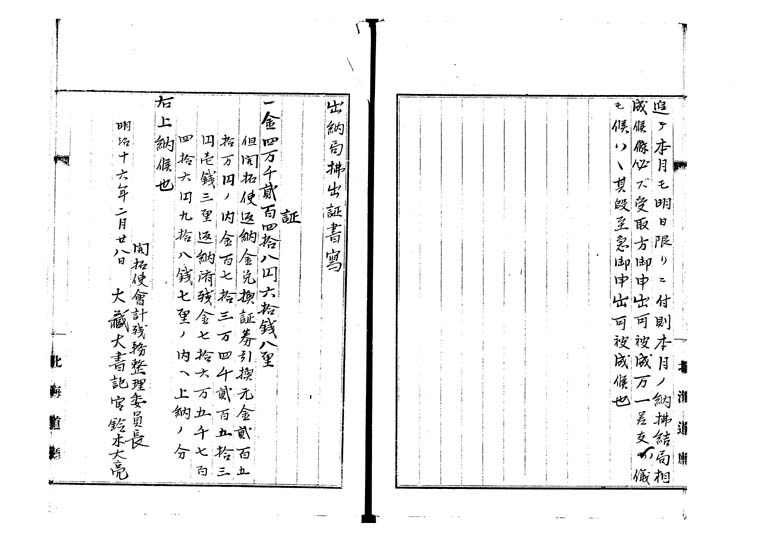 追テ本月モ明日限リニ付則本月ノ納拂結局相
成候條必ス受取方御申出可被成万一差支ノ儀
モ候ハヽ其段至急御申出可被成候也
北海道廳
出納局拂出証書寫
証
一金四万千貳百四拾八円六拾銭八厘
但開拓使返納金兌換証券引換元金貳百五
拾万円ノ内金百七拾三万四千貳百五拾三
円壱銭三厘返納済残金七拾六万五千七百
四拾六円九拾八銭七厘ノ内ヘ上納ノ分
右上納候也
開拓使會計残務整理委員長
明治十六年二月廿八日 大藏大書記官鈴木大亮
北海道廳